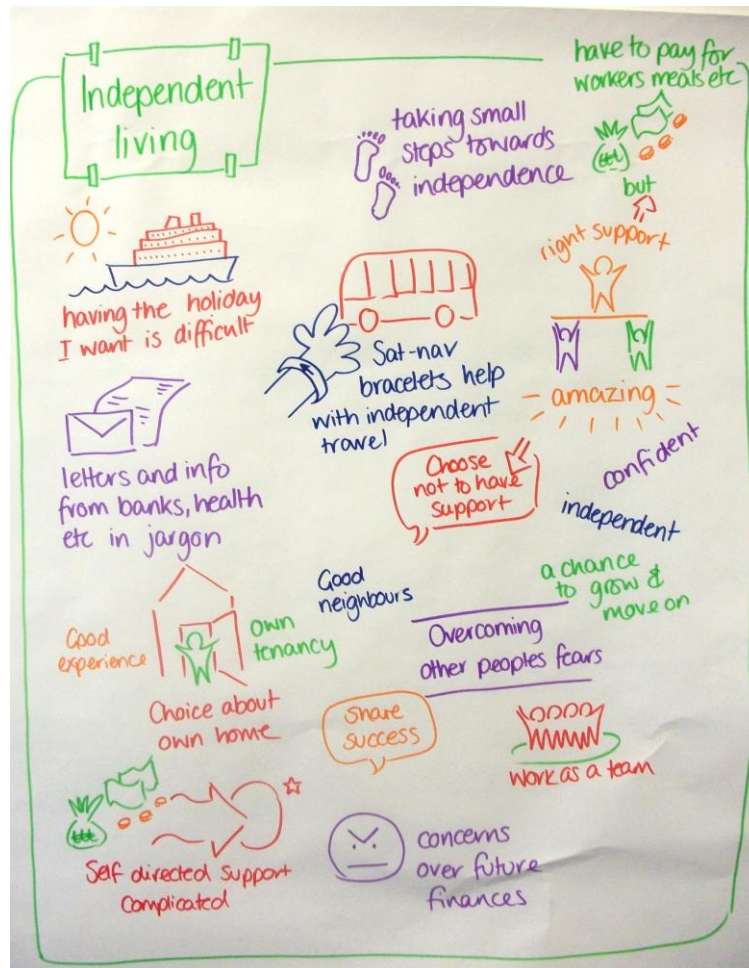 Independent
living
have to pay for
workers meals etc
but
taking small
steps towards
independence
right support
amazing
having the holiday
I want is difficult
Sat-nav
bracelets help
with independent
travel
letters and info
from banks, health
etc in jargon
Choose
not to have
support
confident
independent
a chance
to grow &
move on
Good
neighbours
Good
experience
own
tenancy
Choice about
own home
Overcoming
other peoples fears
Share
success
work as a team
Self directed support
complicated
concerns
over future
finances